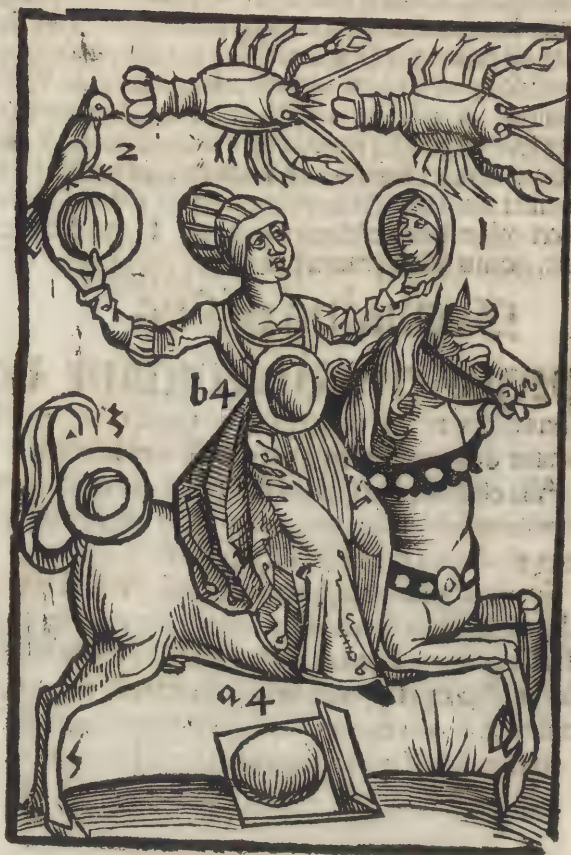 2
1
b4
3
a4
5